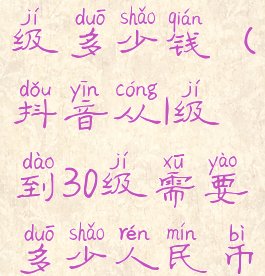 jí duō shǎo qián
级 多 少 钱 (
dǒu yīn cóng jí
抖 音 从 1级
dào jí xū yào
到 30级 需 要
duō shǎo rén mín bì
多 少 人 民 币